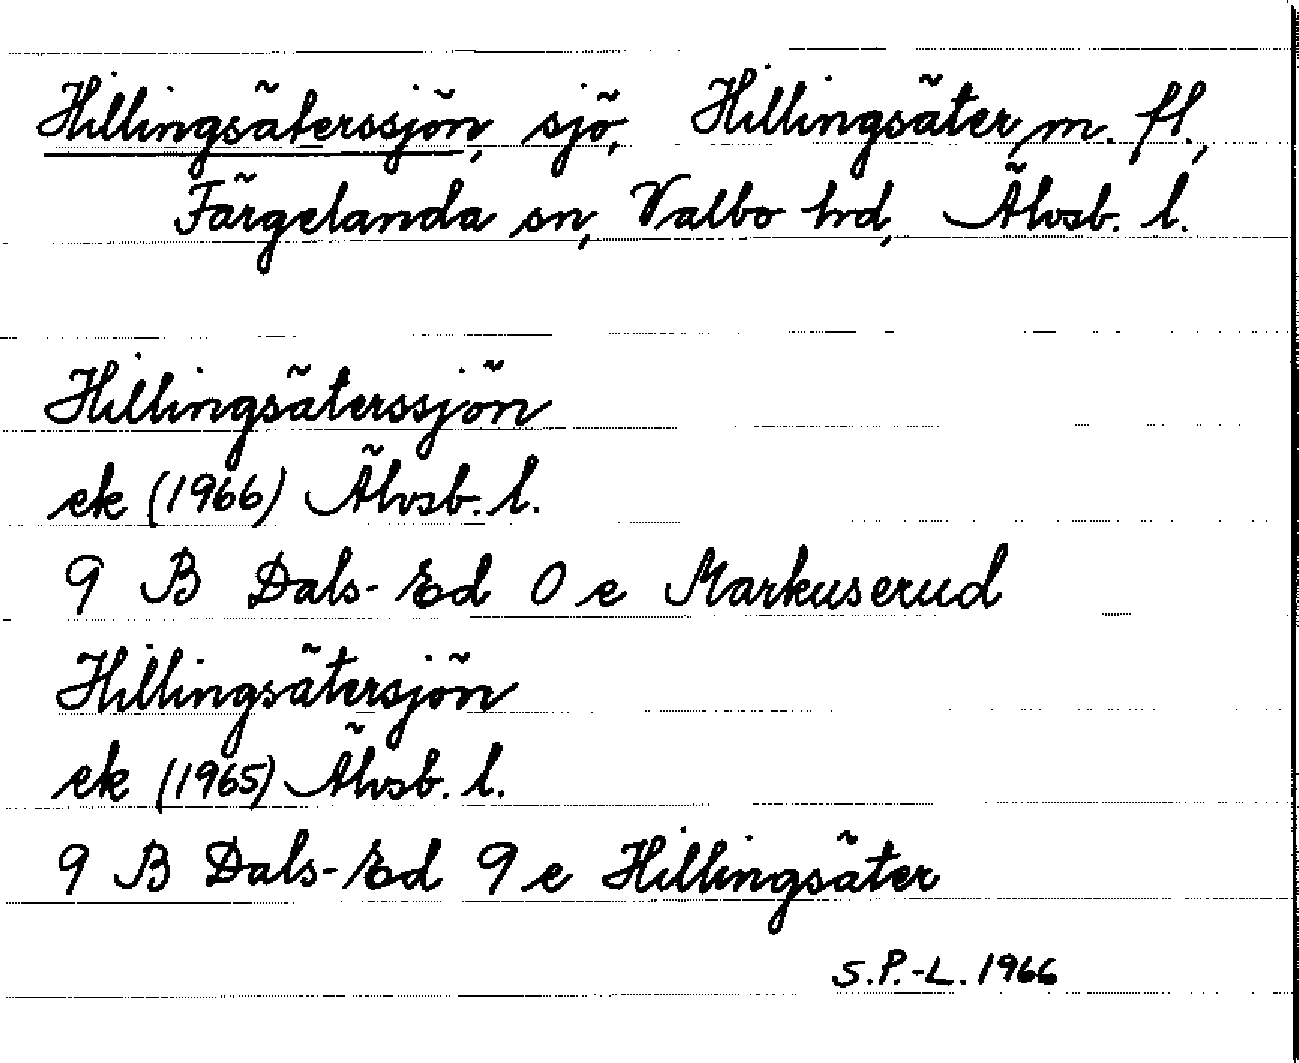 Hillingsäterssjön, sjö, Hillingsäter m. fl.,
Färgelanda sn, Valbo hd, Älvsb. l.
Hillingsäterssjön
ek (1966) Älvsb. l.
9 B Dals-Ed 0 e Markuserud
Hillingsätersjön
ek (1965) Älvsb. l.
9 B Dals-Ed 9 e Hillingsäter
S.P.-L. 1966